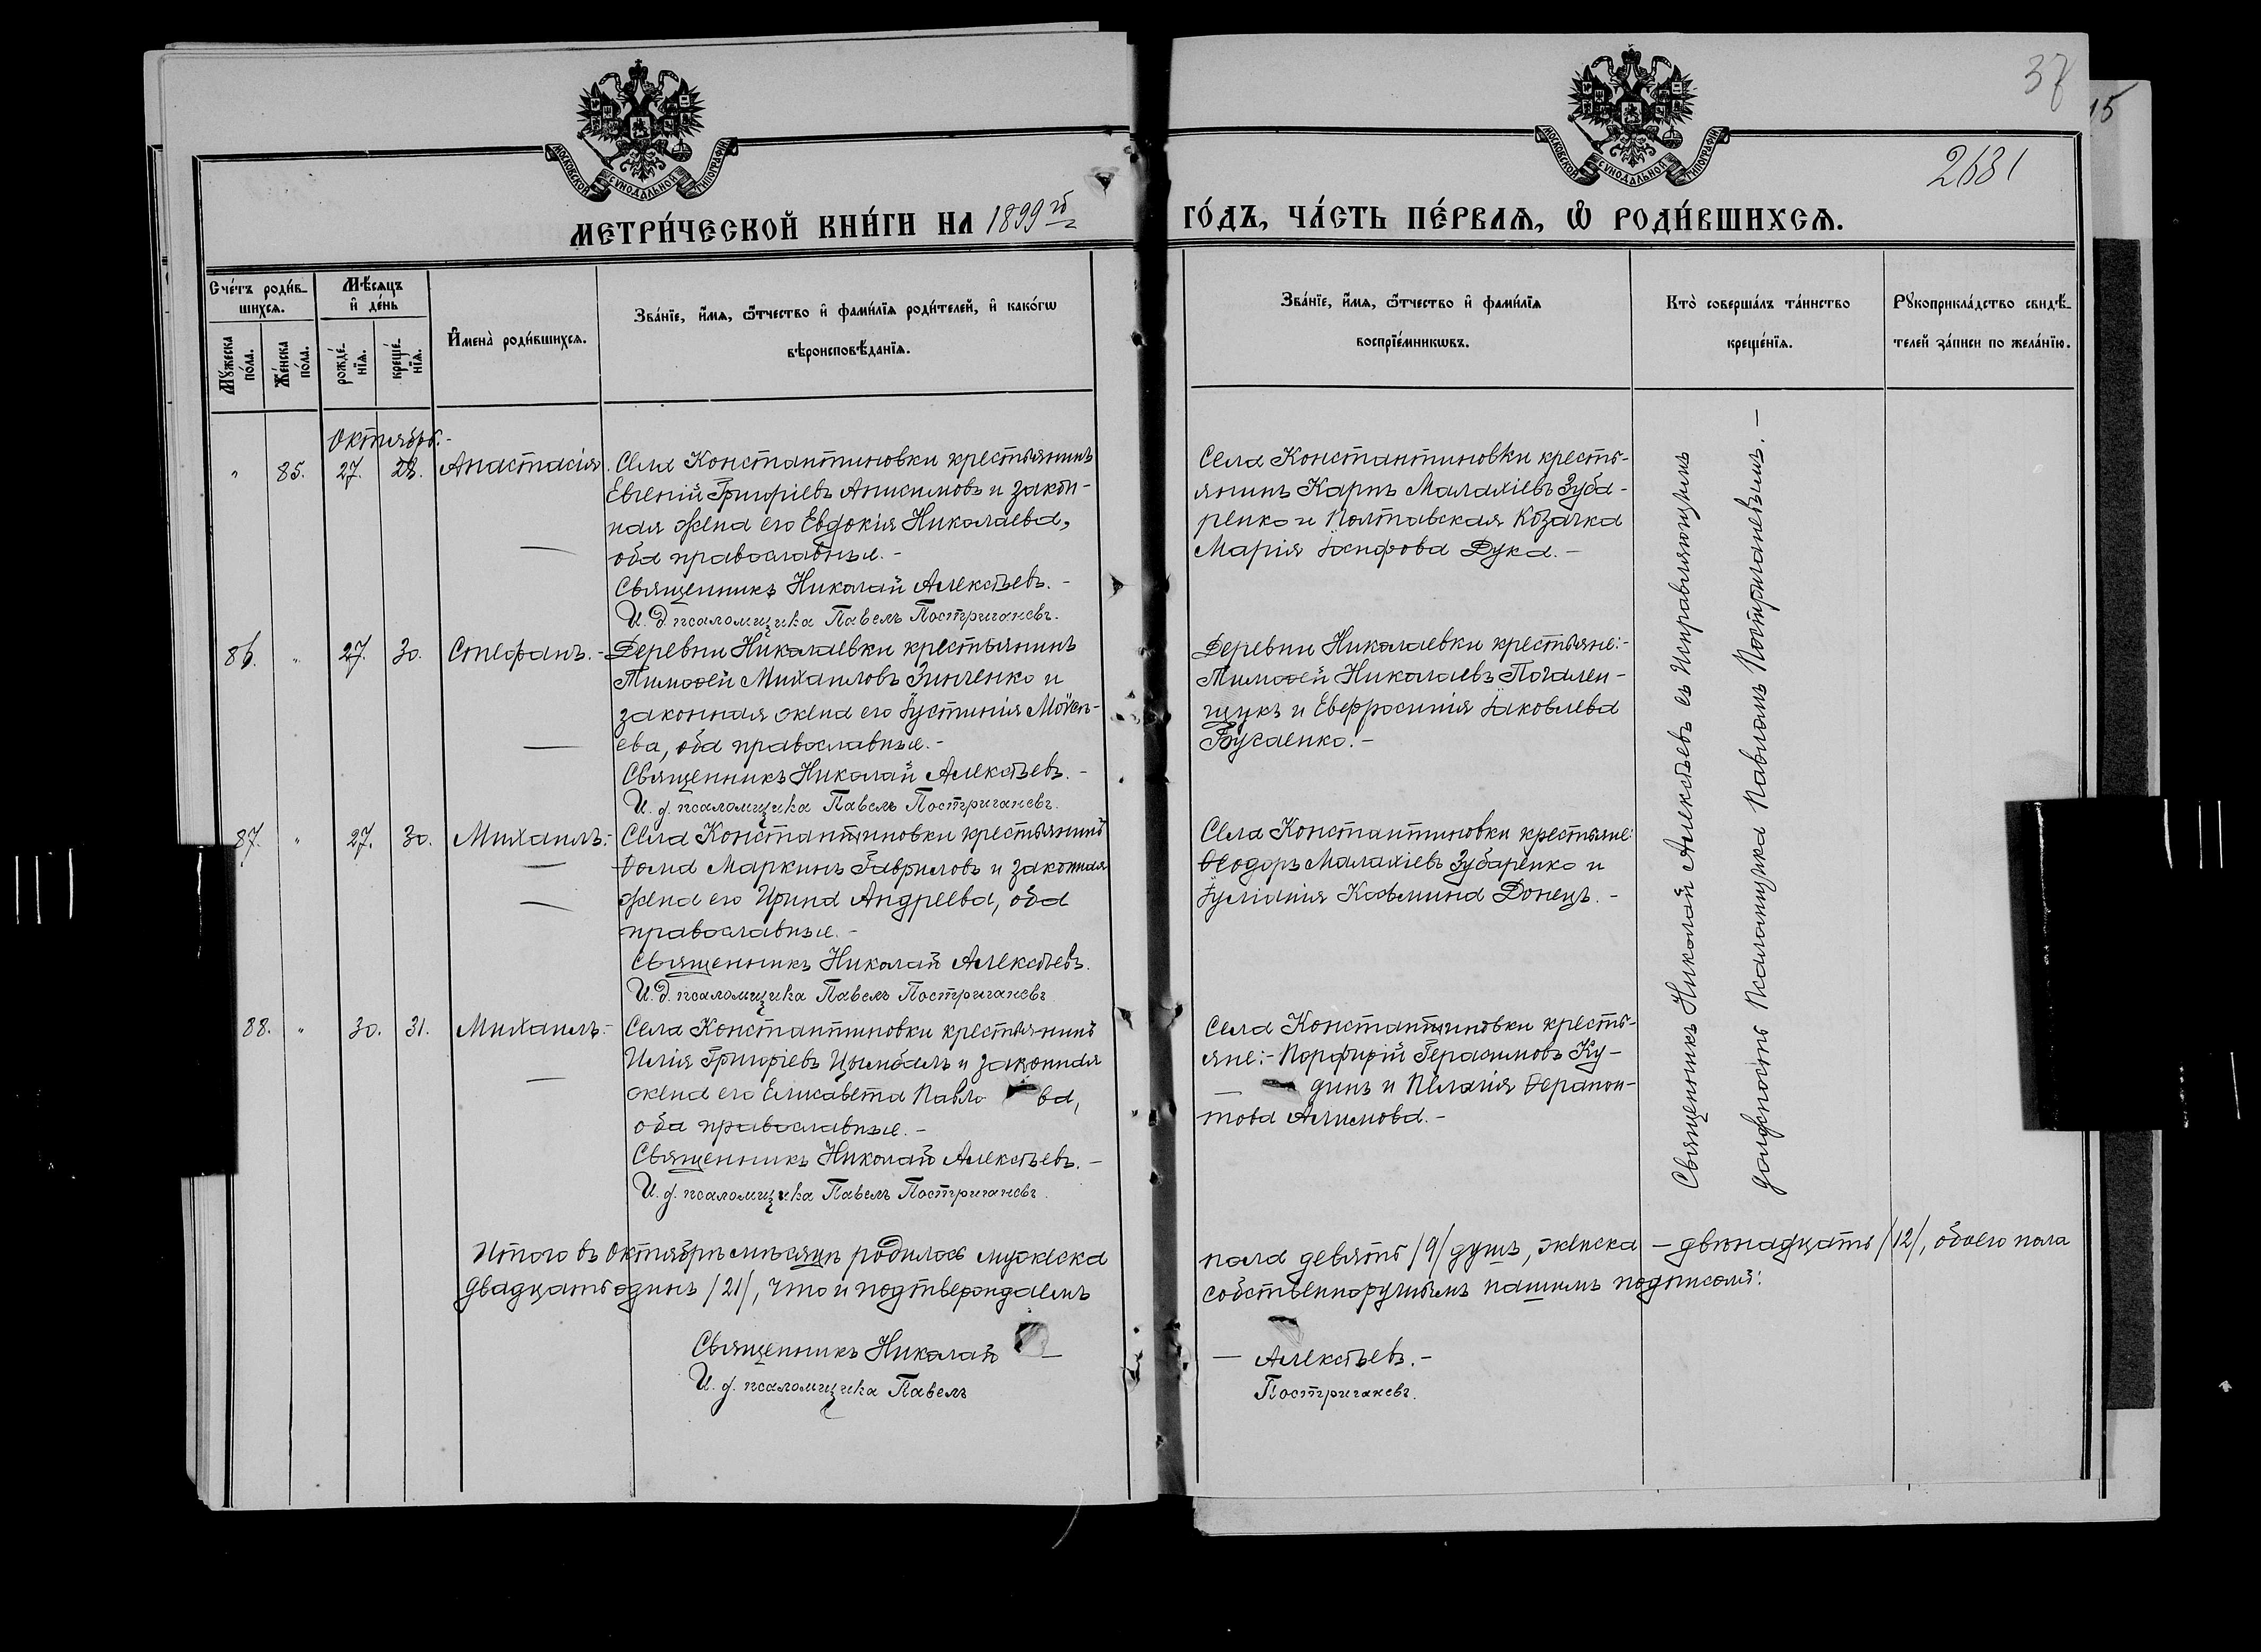 37
15
2681
МОСКОВСКОЙ СѴНОДАЛЬНОЙ ТИПОГРАФІИ
МОСКОВСКОЙ СѴНОДАЛЬНОЙ ТИПОГРАФІИ
МЕТРИ́ЧЕСКОЙ КНИ́ГИ НА 1899 й ГО́ДЪ, ЧА́СТЬ ПЕ́РВАѦ, Ѡ҆ РОДИ́ВШИХСѦ.
Сче́тъ роди́в-
шихсѧ.
Мѣ́сѧцъ
и҆ де́нь
Мꙋ́жеска
по́ла.
Же́нска
по́ла.
рожде́-
нїѧ.
креще́-
нїѧ.
И҆мена̀ роди́вшихсѧ.
Зва́нїе, и҆́мѧ, ѻ҆́тчество и҆ фами́лїѧ роди́телей, и҆ како́гѡ
вѣроисповѣ́данїѧ.
Зва́нїе, и҆́мѧ, ѻ҆́тчество и҆ фами́лїѧ
воспрїе́мникѡвъ.
Кто̀ соверша́лъ та́инство
креще́нїѧ.
Рꙋкоприкла́дство свидѣ́-
телей за́писи по жела́нїю.
Октябрь.-
" 85. 27. 28. Анастасія. Села Константиновки крестьянинъ
Евгеній Григоріевъ Анисимовъ и закон-
ная жена его Евдокія Николаева,
оба православные.-
Священникъ Николай Алексѣевъ.-
И. д. псаломщика Павелъ Постригачевъ.
Села Константиновки кресть-
янинъ Карпъ Малахіевъ Зуба-
ренко и Полтавская Козачка
Марія Іосифова Дука.-
86. " 27. 30. Стефанъ.- Деревни Николаевки крестьянинъ
Тимоѳей Михаиловъ Зинченко и
законная жена его Іустинія Моѵсе-
ева, оба православные.-
Священникъ Николай Алексѣевъ.-
И. д. псаломщика Павелъ Постригачевъ.
Деревни Николаевки крестьяне:-
Тимоѳей Николаевъ
и Евфросинія Іаковлева
Бугаенко.-
87. " 27. 30. Михаилъ.- Села Константиновки крестьянинъ
Ѳома Маркинъ Гавриловъ и законная
жена его Ирина Андреева, оба
православные.-
Священникъ Николай Алексѣевъ.
И. д. псаломщика Павелъ Постригачевъ
Села Константиновки крестьяне:
Ѳеодоръ Малахіевъ Зубаренко и
Іуліанія Козьмина Донецъ.-
88. " 30. 31. Михаилъ.- Села Константиновки крестьянинъ
Илія Григоріевъ Цымбалъ и законная
жена его Елисавета Павлова,
оба православные.-
Священникъ Николай Алексѣевъ.-
И. д. псаломщика Павелъ Постригачевъ.
Села Константиновки кресть-
яне:- Порфирій Герасимовъ Ку-
динъ и Пелагія Ѳерапон-
това Алимова.-
Священникъ Николай Алексѣевъ съ Исправляющимъ
должность Псаломщика Павломъ Постригачевымъ.-
Итого въ Октябрѣ мѣсяцѣ родилось мужеска пола девять /9/ душъ, женска - двѣнадцать /12/, обоего пола
двадцать одинъ /21/, что и подтверждаемъ собственноручнымъ нашимъ подписомъ:
Священникъ Николай - Алексѣевъ.-
И. д. псаломщика Павелъ Постригачевъ.